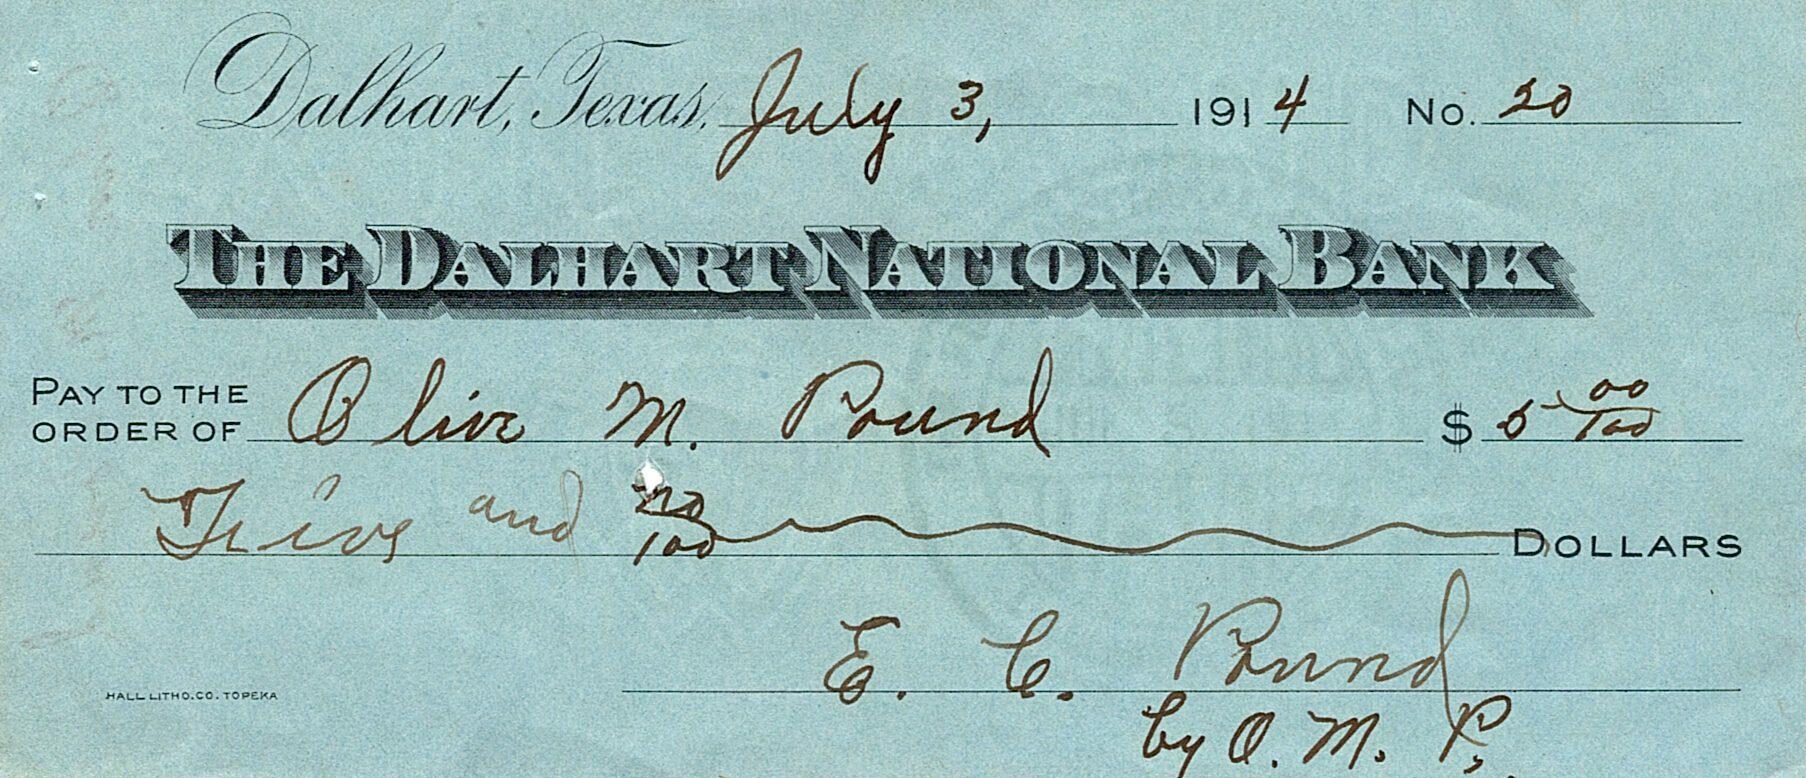 Dalhart, Texas, July 3, 1914 No. 20
THE DALHART NATIONAL BANK
PAY TO THE
ORDER OF Olive M. Pound $ 5 00/100
Five and no/100 DOLLARS
E. C. Pound
HALL LITHO. CO. TOPEKA
by O. M. P.